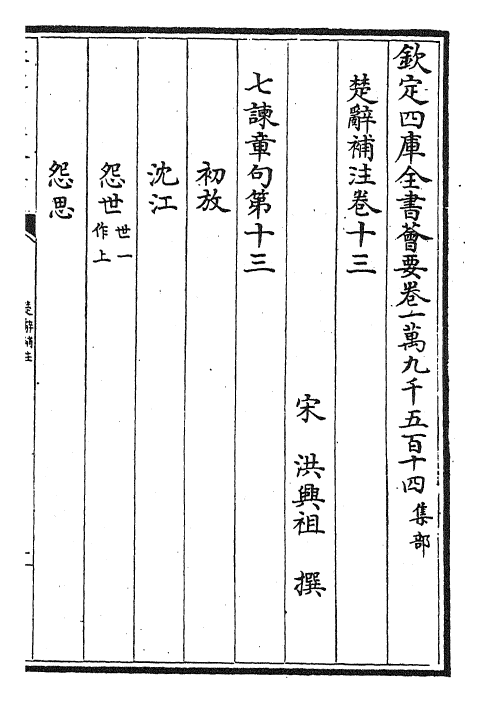 欽定四庫全書薈要卷一萬九千五百十四 集部
楚辭補注卷十三
宋 洪興祖 撰
七諫章句第十三
初放
沈江
怨世 世一作上
怨思
楚辭補注